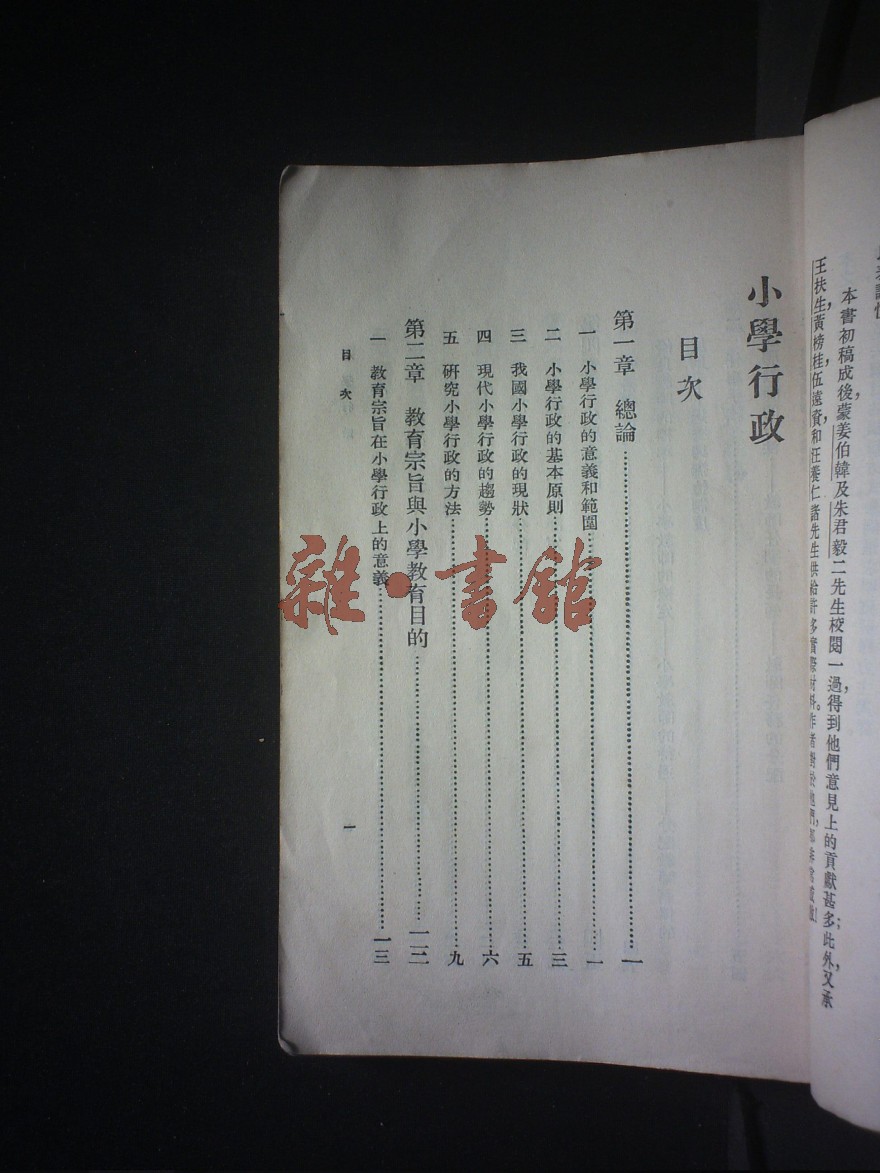 本書初稿成後，蒙姜伯韓及朱君毅二先生校閱一過，得到他們意見上的貢獻甚多；此外，又承
王扶生，黃榜桂，伍遠資，和汪養仁諸先生供給許多實際材料。作者對於他們，
小學行政
目次
第一章　總論……一
一　小學行政的意義和範圍……一
二　小學行政的基本原則……三
三　我國小學行政的現狀……五
四　現代小學行政的趨勢……六
五　研究小學行政的方法……九
第二章　教育宗旨與小學教育目的……一二
一　教育宗旨在小學行政上的意義……一三
目次
一
雜·書館